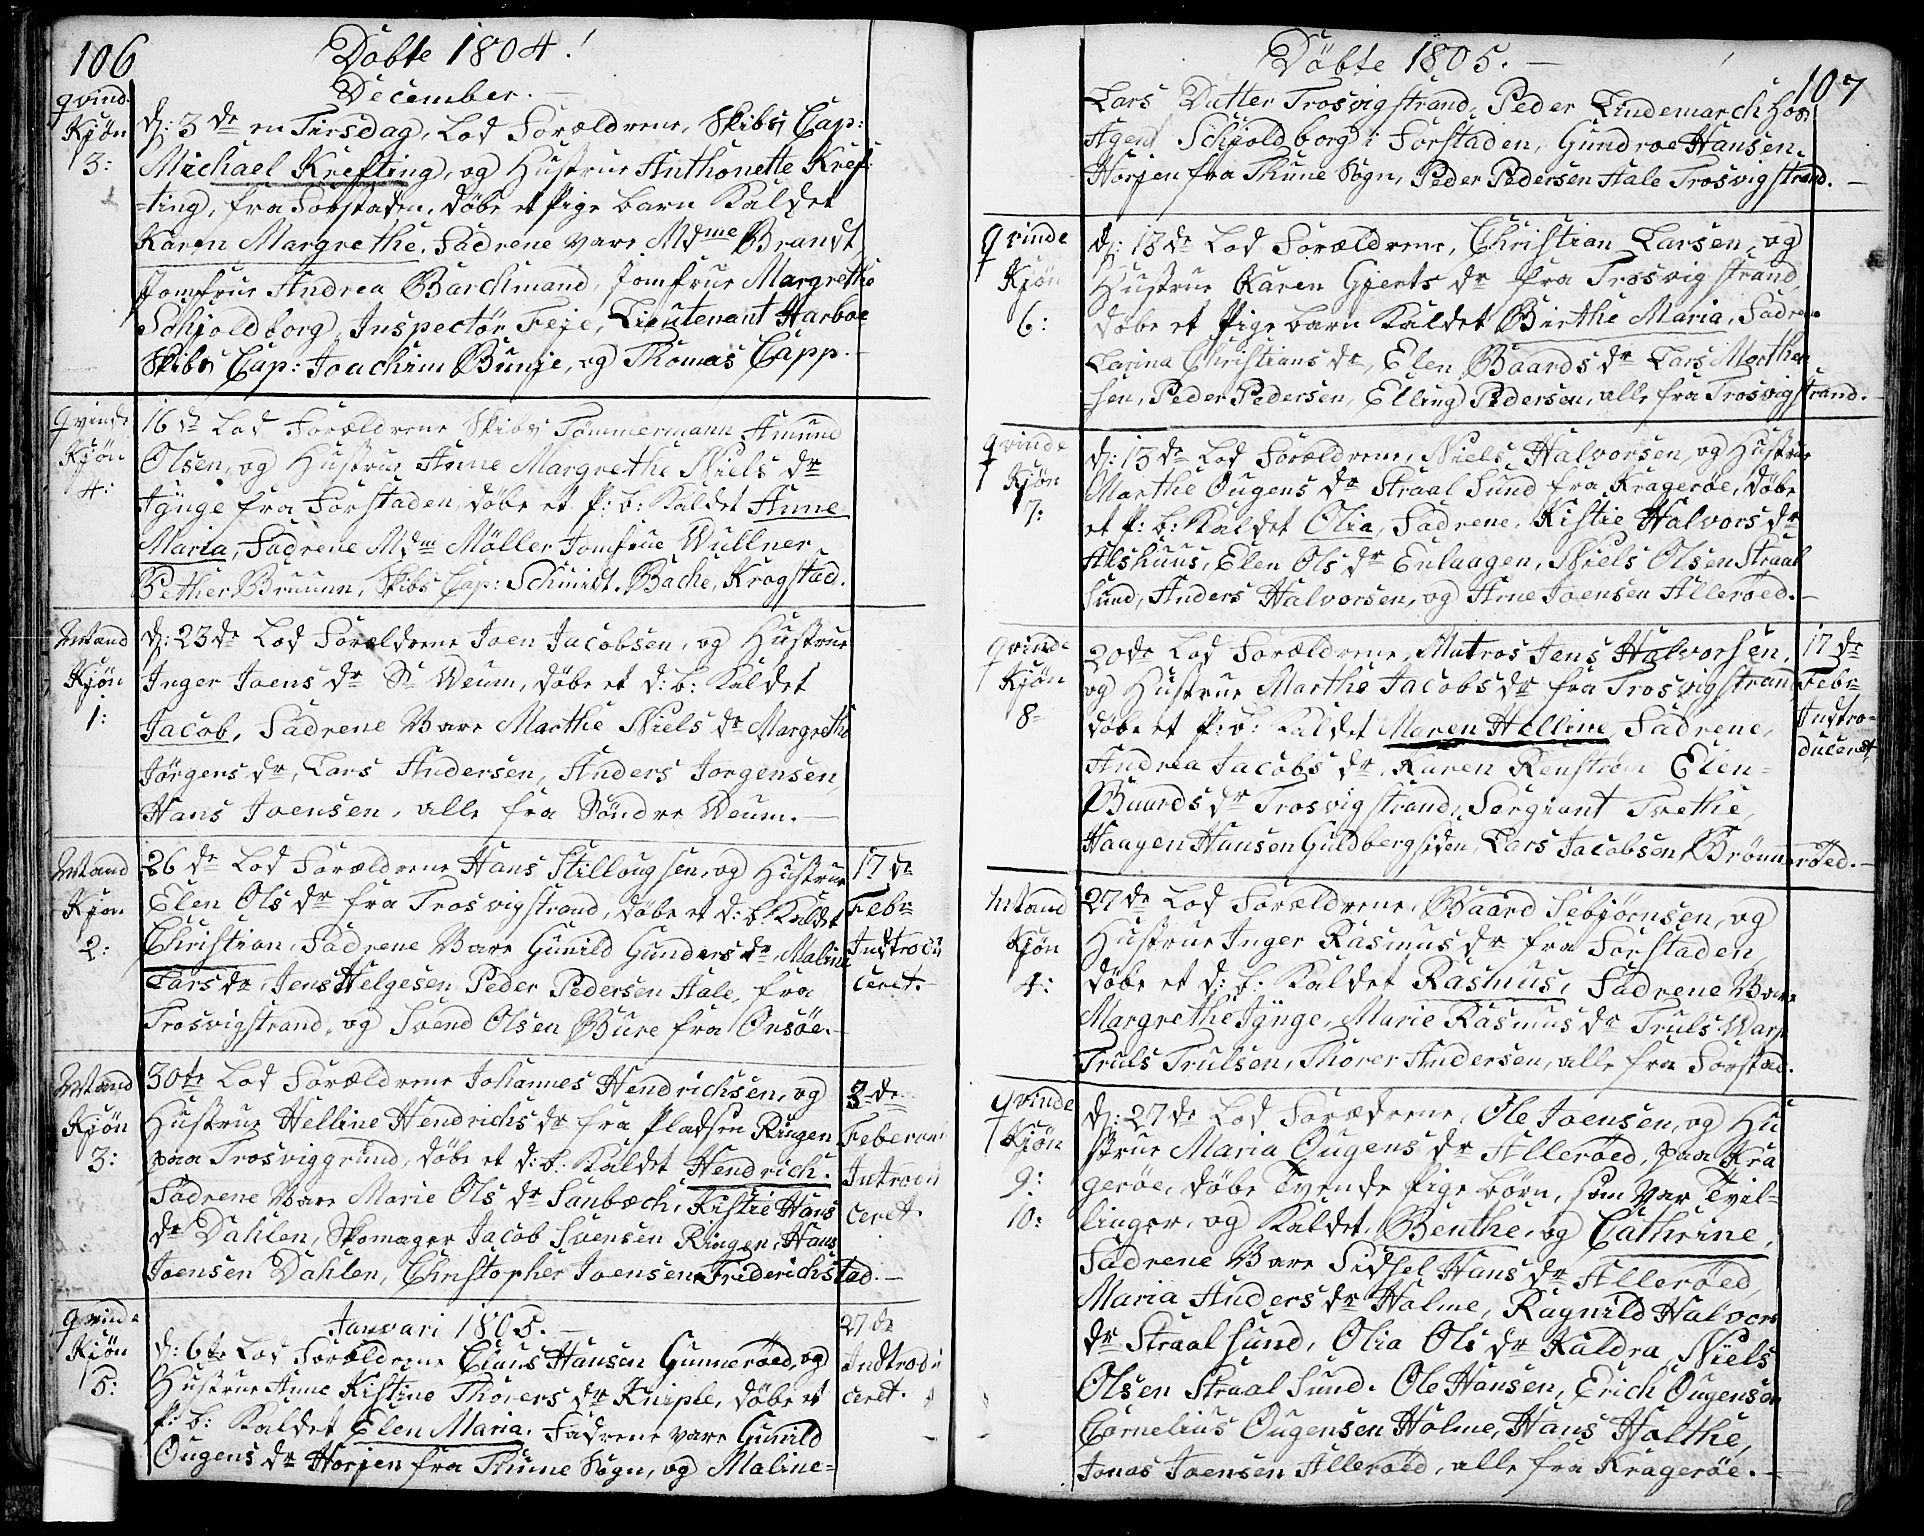 106
Döbte 1804!
December.
qvind.
Kjön
3:
d: 3de en Tirsdag, Lod Forældrene, Skibs Cap:
Michael Krefting, og Hustrue Anthonette Kref-
-ting, fra Forstaden, döbe et Pige barn Kaldet
Karen Margrethe. Fadrene vare Mdme Brandt
Jomfrue Andrea Barchmand, Jomfrue Margrethe
Schjoldborg, Inspectör Feje, Lieutenant Harboe
Skibs Cap: Joachim Bunje, og Thomas Capp.
qvinde
Kjön
4:
16de Lod Forældrene Skibs Tömmermann Amund
Olsen, og Hustrue Anne Margrethe Niels dr
Fynge fra Forstaden, döbe et P: b: Kaldet Anne
Maria, Fadrene Mdm Möller Jomfrue Wullner
Pether Bruunn, Skibs Cap: Schmidt. Bache, Kragstad.
Mand
Kjön
1:
d: 23de Lod Forældrene Joen Jacobsen, og Hustrue
Inger Joens dr Sr Weum, döbe et d: b: Kaldet
Jacob, Fadrene Vare Marthe Niels dr Margrethe
Jörgens dr, Lars Andersen, Anders Jorgensen,
Hans Joensen, alle fra Söndre Weum.
Mand
Kjön
2:
26de Lod Forældrene Hans Stillougsen, og Hustrue
Elen Ols dr fra Trosvigstrand, döbe et d: b: Kaldet
Christian, Fadrene Vare Gunild Gunders dr Maline
Lars dr, Jens Helgesen Peder Pedersen Hale, fra
Trosvigstrand, og Svend Olsen Bure fra Onsöe.
17de
Febr
Indtrodu
ceret.
Mand
Kjön
3:
30te Lod Forældrene Johannes Hendrichsen, og
Hustrue Helline Hendrichs dr fra Pladsen Ringen
paa Trosviggrund, döbe et d: b: Kaldet Hendrich.
Fadrene Vare Marie Ols dr Saubæch, Kistie Hans
dr Dahlen, Skomager Jacob Svensen Ringen, Hans
Joensen Dahlen, Christopher Joensen Friderichstad.
3de
Feberuar
Introdu
ceret.
Januari 1805.
qvinde
Kjön
5:
d: 6te Lod Forældrene Claus Hansen Gunneröed, og
Hustrue Anne Kistine Thorers dr Kniple, döbe et
P: b: Kaldet Elen Maria. Fadrene vare Gunild
Ougens dr Horjen fra Thune Sogn, og Maline-
27de
Indtrodu
ceret.
Döbte 1805.
107
Lars Datter Trosvigstrand, Peder Lindemarch hos
Agent Schjoldborg i Forstaden, Gundroe Hansen.
Horjen fra Thune Sogn, Peder Pedersen Hale Trosvigstrand.
qvinde
Kjön
6:
d: 13de Lod Forældrene, Christian Larsen, og
Hustrue Karen Gjerts dr fra Trosvigstrand,
döbe et Pige barn Kaldet Birthe Maria, Fadrene
Larina Christians dr, Elen Baards dr Lars Morthen
sen, Peder Pedersen, Elling Pedersen, alle fra Trosvigstrand.
qvinde
Kjön
7:
d: 13de Lod Forældrene, Niels Halvorsen, og Hustrue
Marthe Ougens dr Straal Sund fra Kragerøe, döbe
et P: b: Kaldet Olia, Fadrene, Kistie Halvors dr
Alshuus, Elen Ols dr Enlaagen, Niels Olsen Straal
sund, Anders Halvorsen, og Arne Joensen Alleröed.
qvinde
Kjön
8-
20de Lod Forældrene, Matros Jens Halvorsen,
og Hustrue Marthe Jacobs dr fra Trosvigstrand
döbe et P: b: Kaldet Maren Helline, Fadrene,
Andrea Jacobs dr, Karen Renström Elen-
Baards dr Trosvigstrand, Sergiant Trethe,
Haagen Hansen Guldbergsiden, Lars Jacobsen, Brönneröed.
17de
Febr
Indtro-
duceret
Mand
Kjön
4:
27de Lod Forældrene, Baard Sebjörnsen, og
Hustrue Inger Rasmus dr fra Forstaden,
döbe et d: b: Kaldet Rasmus, Fadrene Vare
Margrethe Fynge, Marie Rasmus dr Truls Warp
Truls Trulsen, Thorer Andersen, alle fra Forstad.
qvinde
Kjön
9:
10:
d: 27de Lod Forædrene, Ole Joensen, og Hu
strue Maria Ougens dr Alleröed, paa Kra
geröe, döbe Tvende Pige börn, som Var Tvil-
linger, og Kaldet, Benthe, og Cathrine,
Fadrene Vare Sidsel Hans dr Alleröed,
Maria Anders dr Holme, Ragnild Halvors
dr Straal Sund, Olia Ols dr Kaldra, Niels
Olsen Straal Sund. Ole Hansen, Erich Ougensen
Cornelius Ougensen Holme, Hans Holthe,
Jonas Joensen Alleröed, alle fra Krageröe.